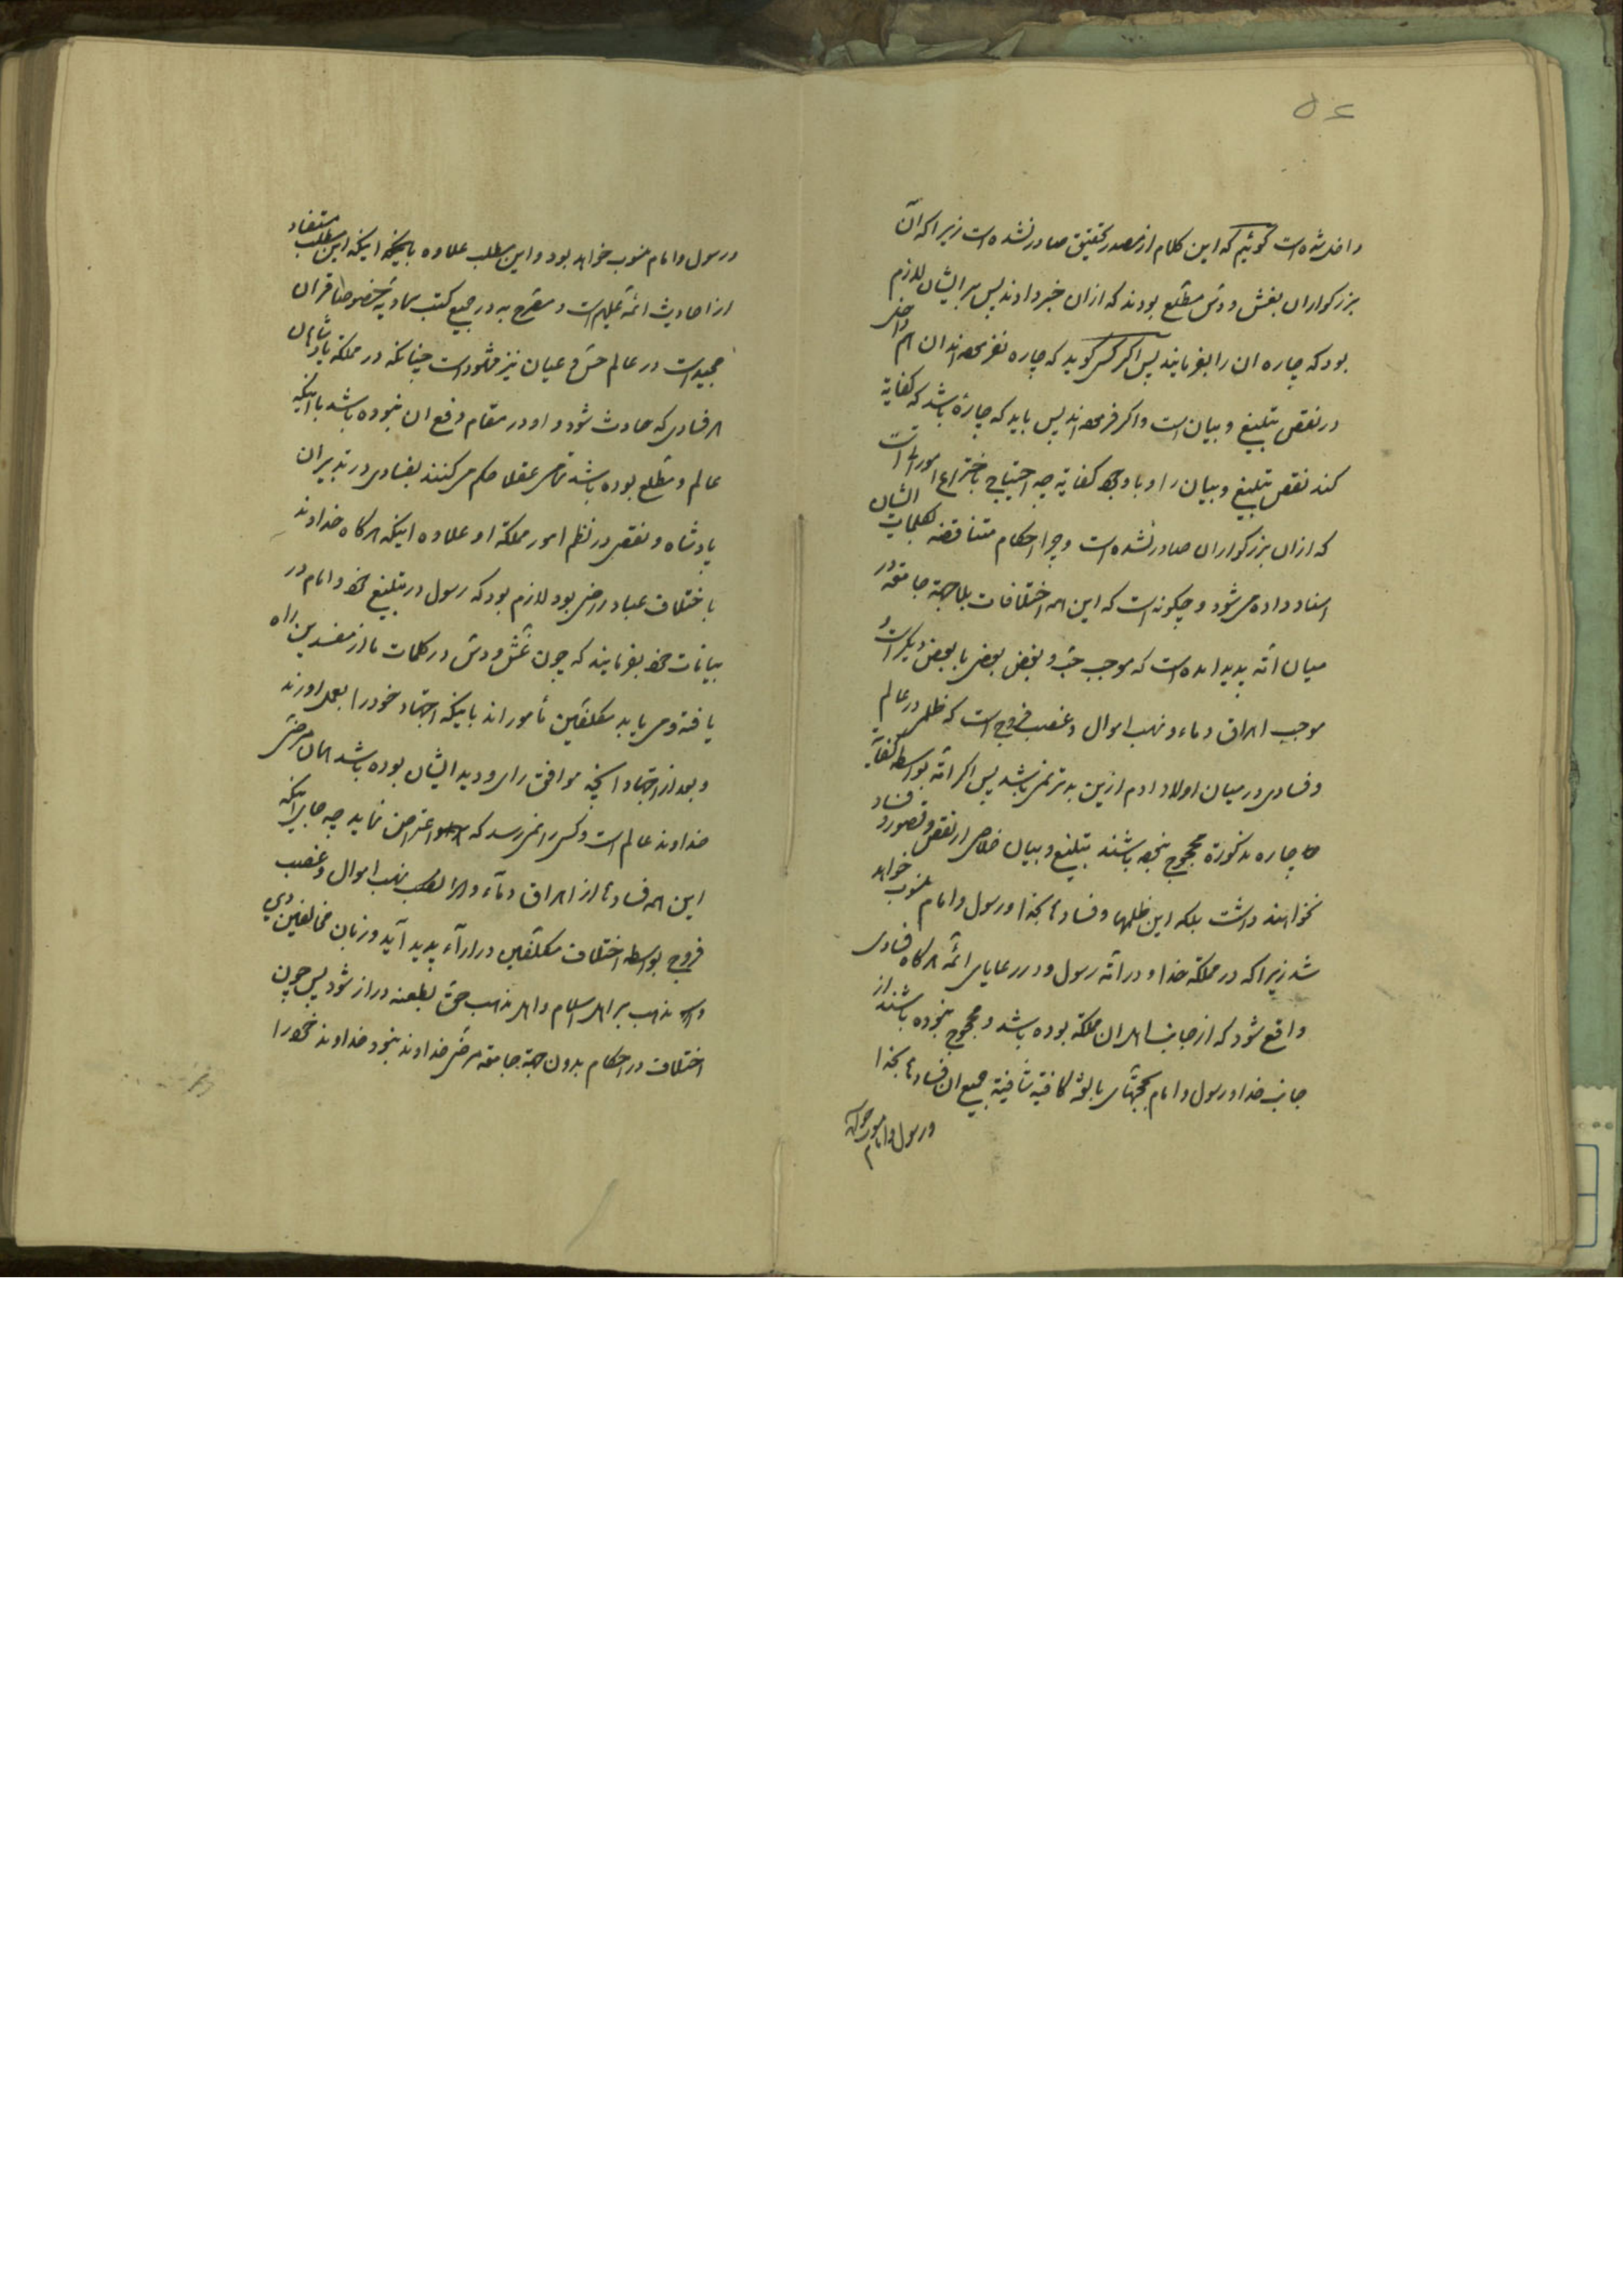 ۵۴
واقع شده است گوئیم که این کلام از مصدر تحقیق صادر نشده است زیرا که آن
بزرگواران بغش ودس مطلع بودند که ازان خبر دادند پس بر ایشان لازم
بود که چاره ان را بفرمایند پس اگر کسی گوید که چاره نفرموده‌اند ان هم
در نقص تبلیغ و بیان است واگر فرموده‌اند پس باید که چارهٔ باشد که کفایة
کند نقص تبلیغ و بیان را و با وجود کفایة چه احتیاج باختراع امور است
که ازان بزرگواران صادر نشده است و چرا احکام متناقضه بکلمات ایشان
اسناد داده می شود و چگونه است که این همه اختلافات بلا جهة جامعه در
میان امّة پدید امده است که موجب حبّ و بغض بعضی با بعض دیگر است و
موجب اهراق دماء و نهب اموال و غصب فروج است که ظلمی در عالم
و فسادی در میان اولاد ادم ازین بدتر نمی باشد پس اگر امّة بواسطه کفایة
چاره مذکورة محجوج نبوده باشند تبلیغ و بیان خلاصی از نقص و قصور و فساد
نخواهند داشت بلکه این ظلمها و فسادها بخدا و رسول و امام منسوب خواهد
شد زیرا که در مملکة خدا و در امّة رسول و در رعایای ائمّه هرگاه فسادی
واقع شود که از جانب اهل ان مملکة بوده باشد و محجوج نبوده باشند از
جانب خدا و رسول و امام بحجتهای بالغهٔ کافیه شافیة جمیع ان فسادها بخدا
ورسول وامام
ورسول وامام منسوب خواهد بود و این مطلب علاوه اینکه این مطلب مستفاد
از احادیث ائمّه علیهم است و مصرّح به در جمیع کتب سماویّه خصوصا قران
مجید است در عالم حسّ و عیان نیز مشهود است چنانکه در مملکة پادشاهان
هر فسادی که حادث شود و او در مقام دفع ان نبوده باشد با اینکه
عالم و مطّلع بوده باشد تمامی عقلا حکم می کنند بفسادی در تدبیر ان
پادشاه و نقصی در نظم امور مملکة او علاوه اینکه هرگاه خداوند
باختلاف عباد راضی بود لازم بود که رسول در تبلیغ خود و امام در
بیانات خود بفرمایند که چون غشّ ودسّ در کلمات ما از مفسدین راه
یافته و می یابد مکلفین مأمور اند باینکه اجتهاد خود را بعمل اورند
و بعد از اجتهاد انچه موافق رای و دید ایشان بوده باشد همان مرضیّ
خداوند عالم است و کسی را نمی رسد که اعتراض نماید چه جای اینکه
این همه فسادها از اهراق دماء و نهب اموال و غصب
فروج بواسطه اختلاف مکلّفین در اراء پدید آید و زبان مخالفین دین
و مذهب بر اهل اسلام و اهل مذهب حقّ بطعنه دراز شود پس چون
اختلاف در احکام بدون جهة جامعه مرضیّ خداوند نبود خداوند خود را